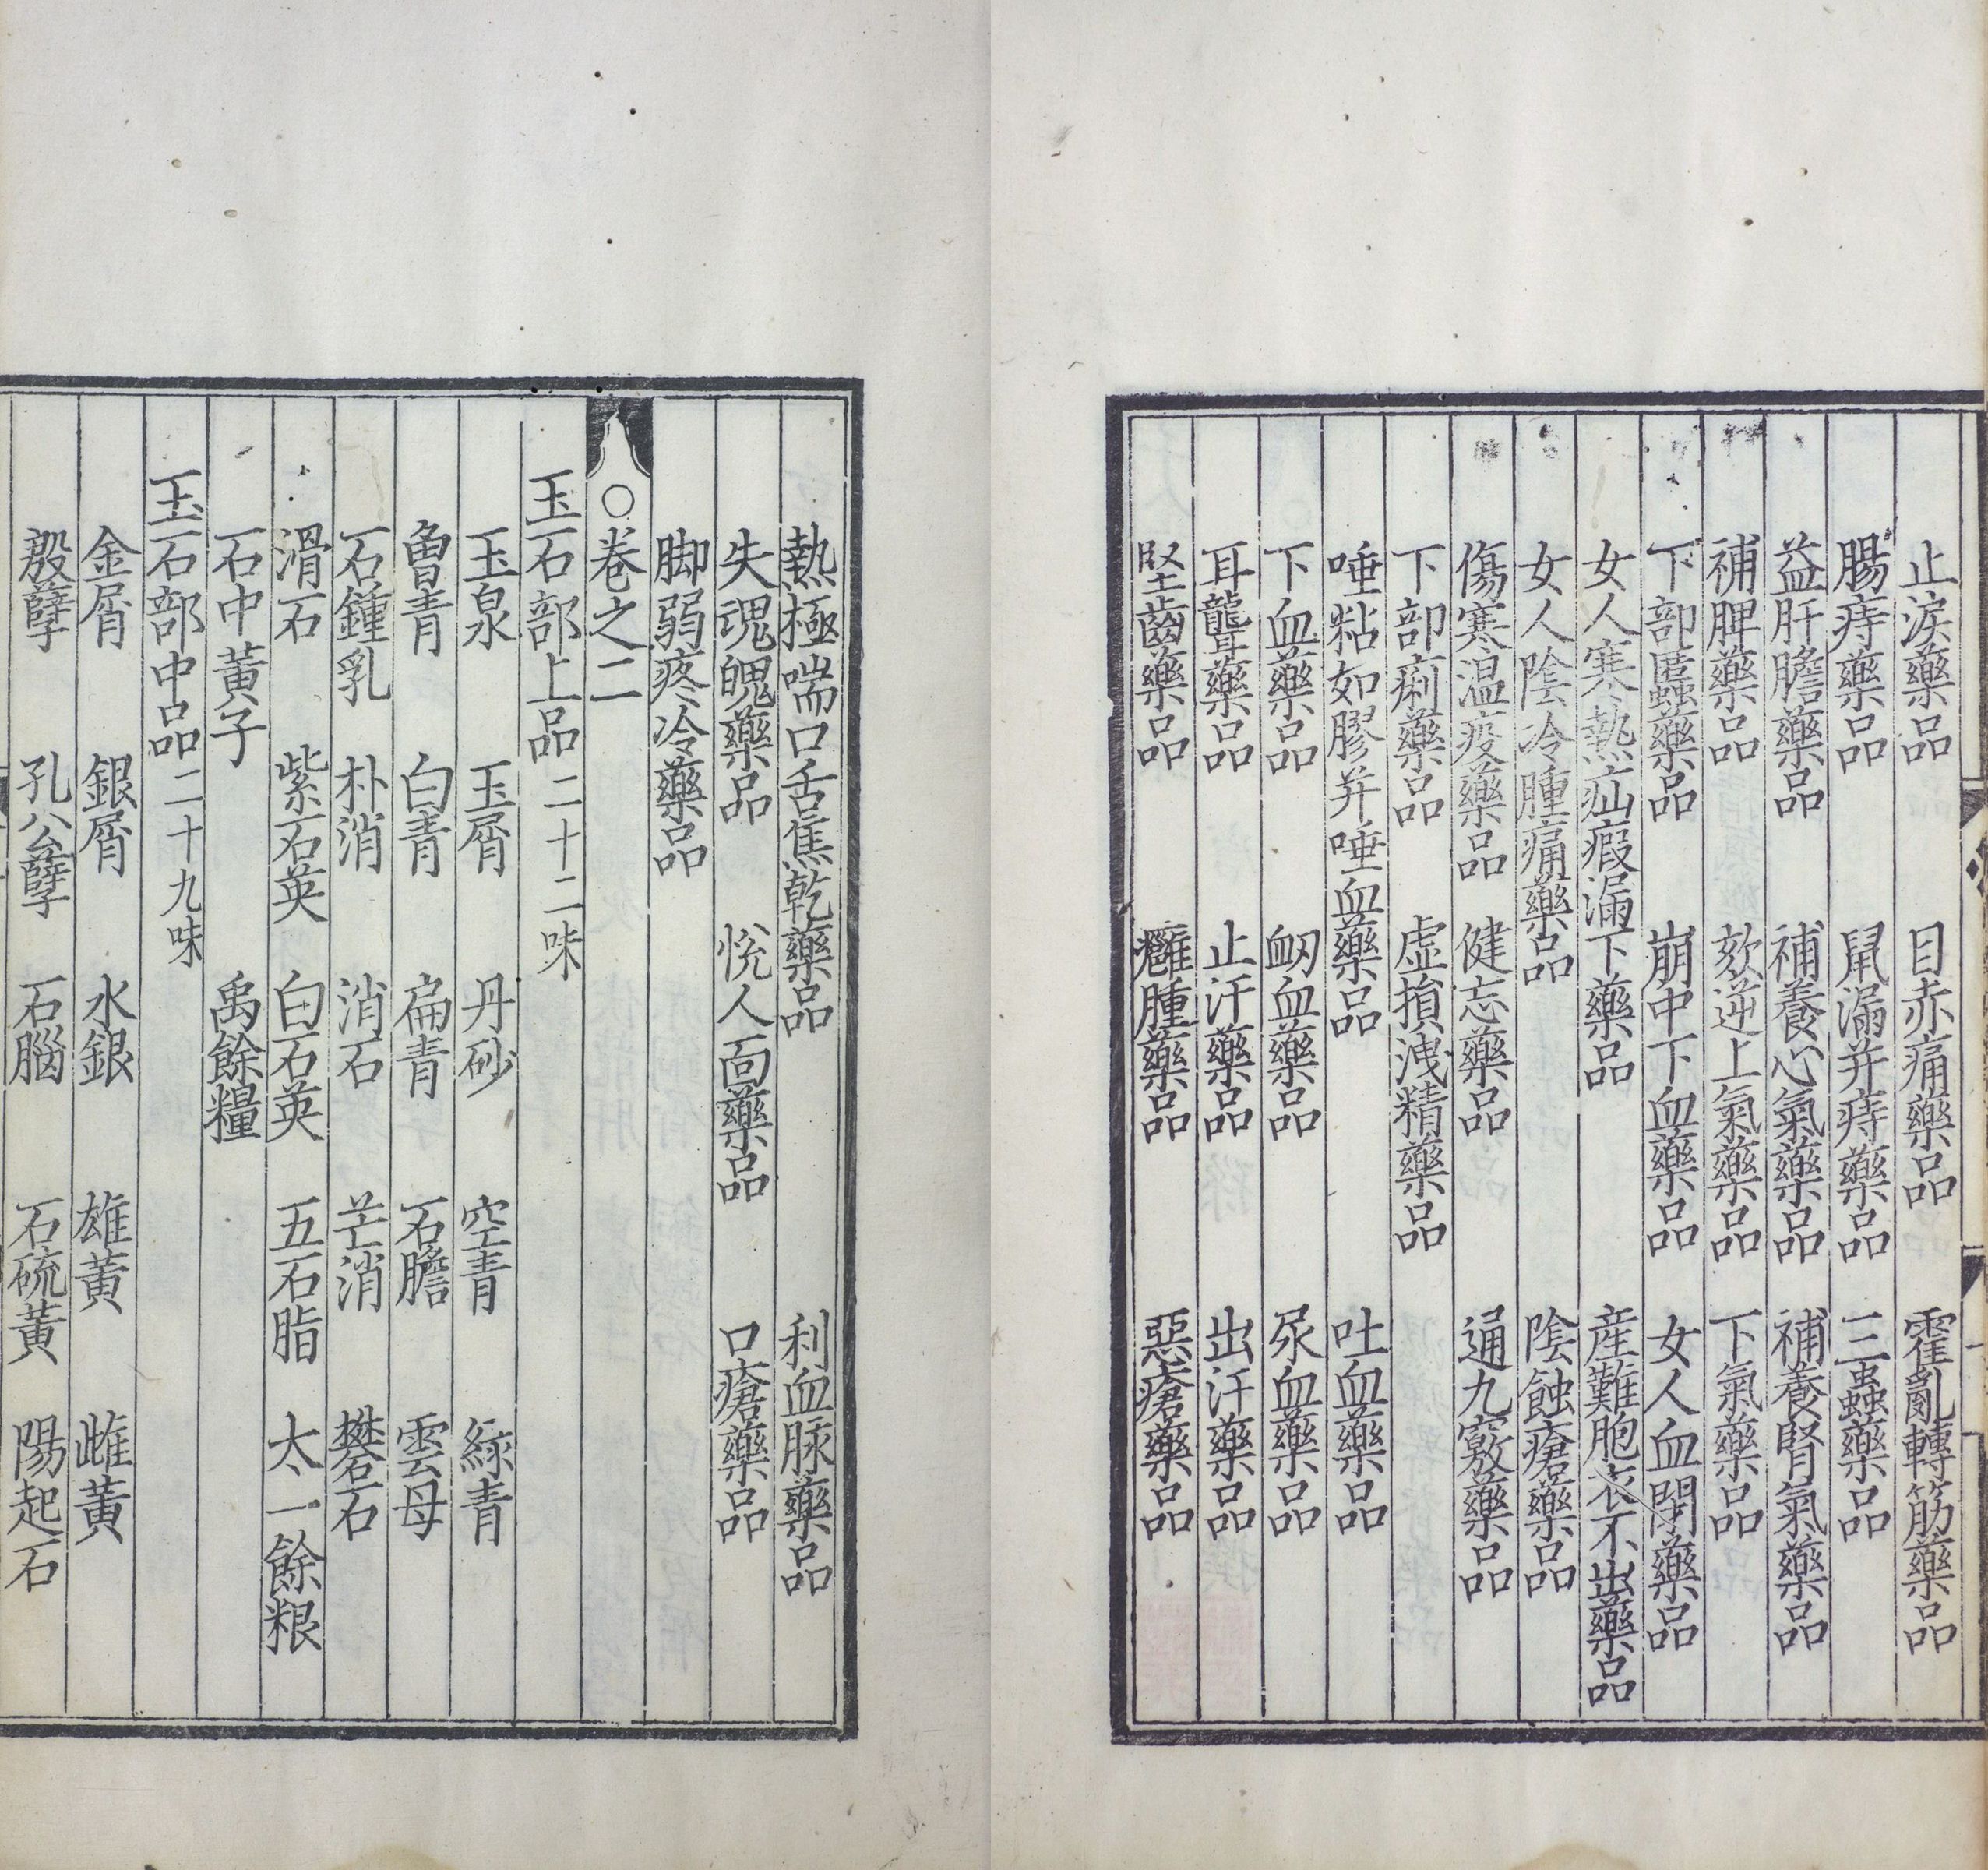 止淚藥品 目赤痛藥品 霍亂轉筋藥品
腸痔藥品 鼠漏并痔藥品 三蟲藥品
益肝膽藥品 補養心氣藥品 補養腎氣藥品
補脾藥品 欬逆上氣藥品 下氣藥品
下部䘌藥品 崩中下血藥品 女人血閉藥品
女人寒熱疝瘕漏下藥品 産難胞衣不出藥品
女人陰冷腫痛藥品 陰蝕瘡藥品
傷寒温疫藥品 健忘藥品 通九竅藥品
下部痢藥品 虛損洩精藥品
唾粘如膠并唾血藥品 吐血藥品
下血藥品 衂血藥品 尿血藥品
耳聾藥品 止汗藥品 出汗藥品
堅齒藥品 癰腫藥品 惡瘡藥品
熱極喘口舌焦乾藥品 利血脉藥品
失魂魄藥品 悅人面藥品 口瘡藥品
脚弱疼冷藥品
○卷之二
玉石部上品二十二味
玉泉 玉屑 丹砂 空青 綠青
魯青 白青 扁青 石膽 雲母
石鍾乳 朴消 消石 芒消 礬石
滑石 紫石英 白石英 五石脂 太一餘粮
石中黃子 禹餘糧
玉石部中品二十九味
金屑 銀屑 水銀 雄黃 雌黃
殷孽 孔公孽 石腦 石硫黃 陽起石